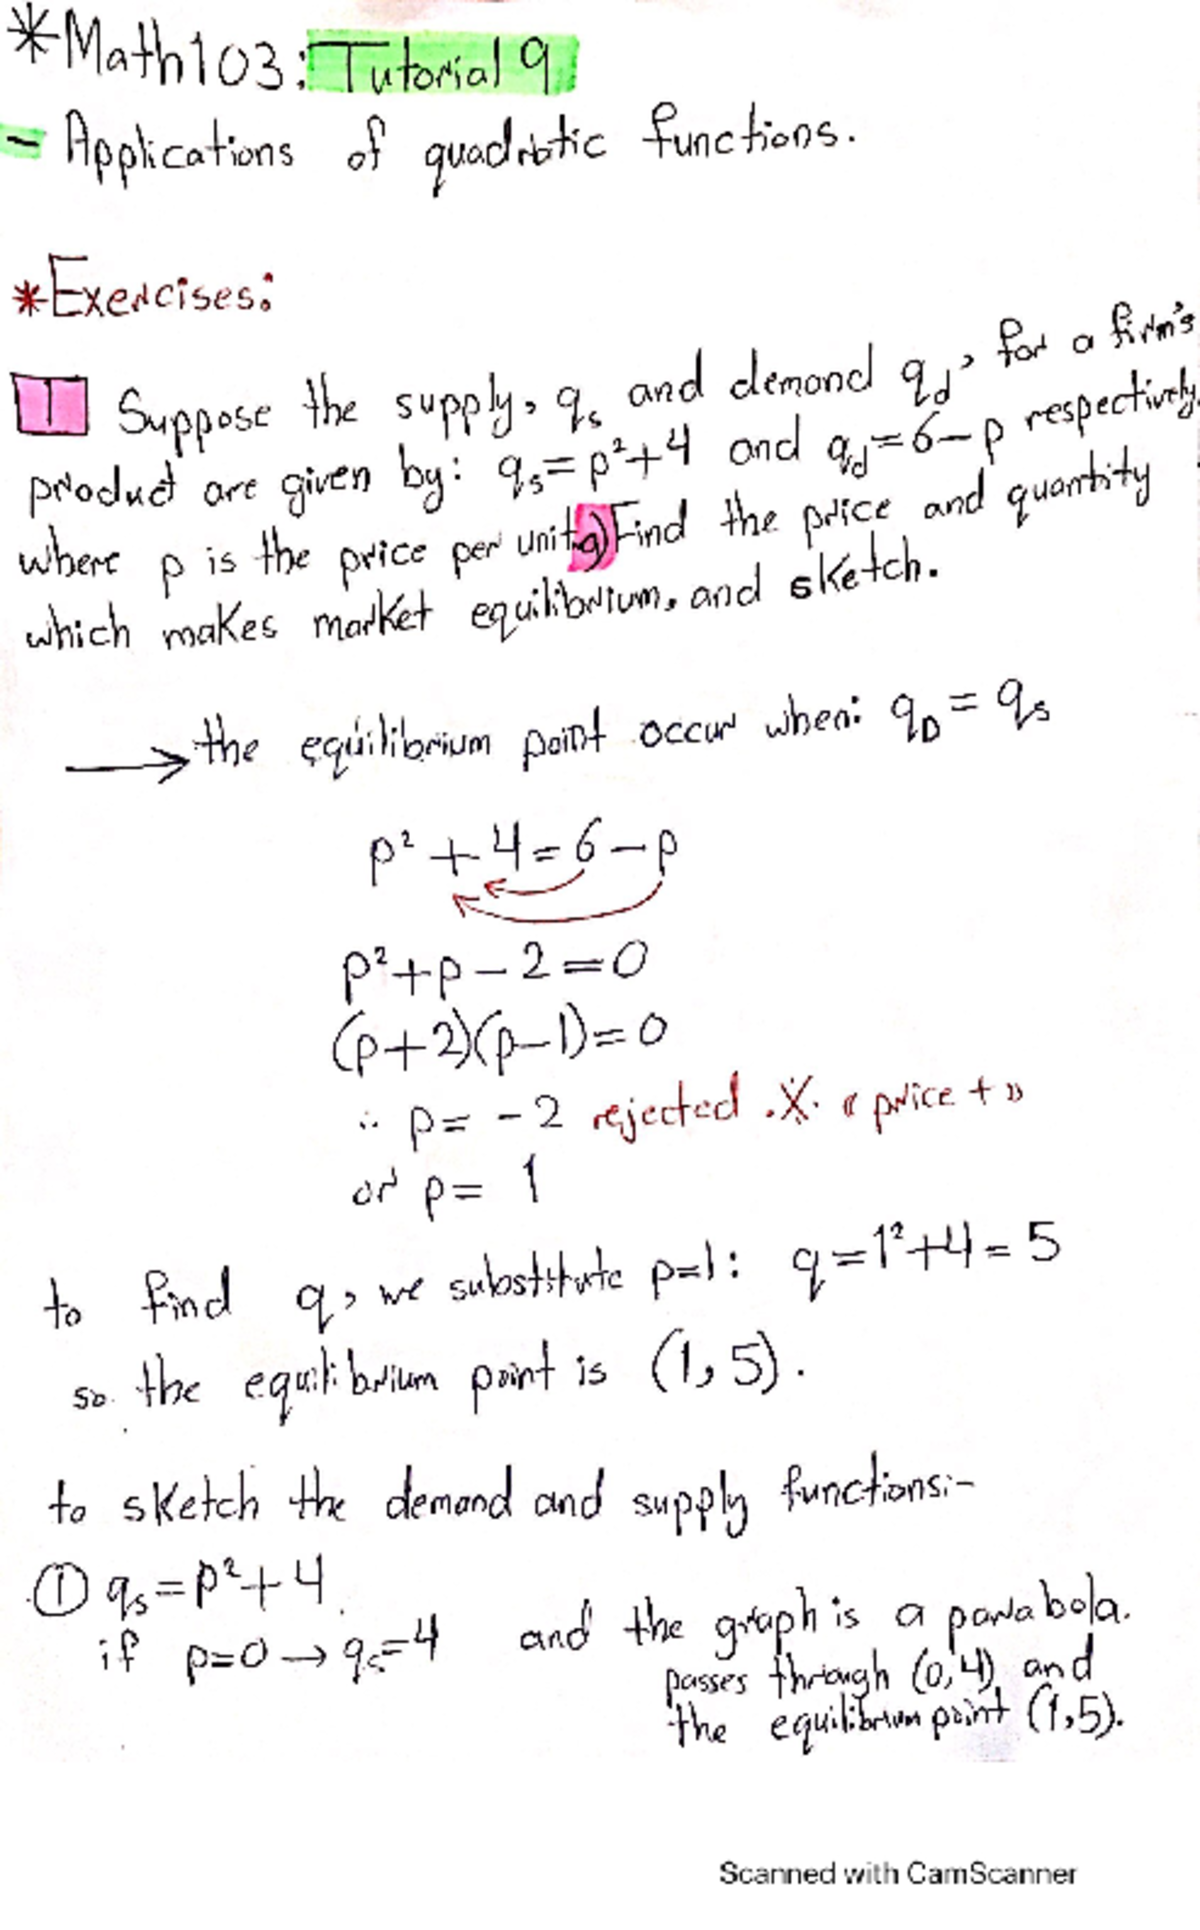 *Math103: Tutorial 9
- Applications of quadratic functions.
*Exercises:
1 Suppose the supply, qₛ and demand q_d, for a firm's
product are given by: qₛ=p²+4 and q_d=6-p respectively.
where p is the price per unit. a) Find the price and quantity
which makes market equilibrium, and sketch.
→ the equilibrium point occur when: q_D = qₛ
p² + 4 = 6 - p
p² + p - 2 = 0
(p+2)(p-1) = 0
∴ p = -2 rejected .X. « price + »
or p = 1
to find q, we substitute p=1: q = 1²+4 = 5
so the equilibrium point is (1, 5).
to sketch the demand and supply functions:-
① qₛ = p²+4
if p=0 → qₛ=4 and the graph is a parabola.
passes through (0,4) and
the equilibrium point (1,5).
Scanned with CamScanner